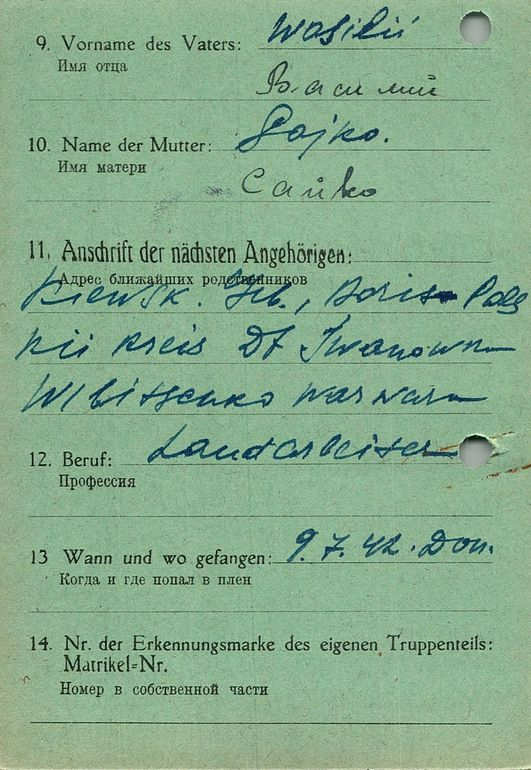 9. Vorname des Vaters: Wasilii
Имя отца Василий
10. Name der Mutter: Sajko.
Имя матери Сайко
11. Anschrift der nächsten Angehörigen:
Адрес ближайших родственников
Kiewsk. Geb., Boris-Pols
kii Kreis Df Iwanowka
Wlitschenko Warwara
12. Beruf: Landarbeiter
Профессия
13 Wann und wo gefangen: 9.7.42. Don.
Когда и где попал в плен
14. Nr. der Erkennungsmarke des eigenen Truppenteils:
Matrikel-Nr.
Номер в собственной части